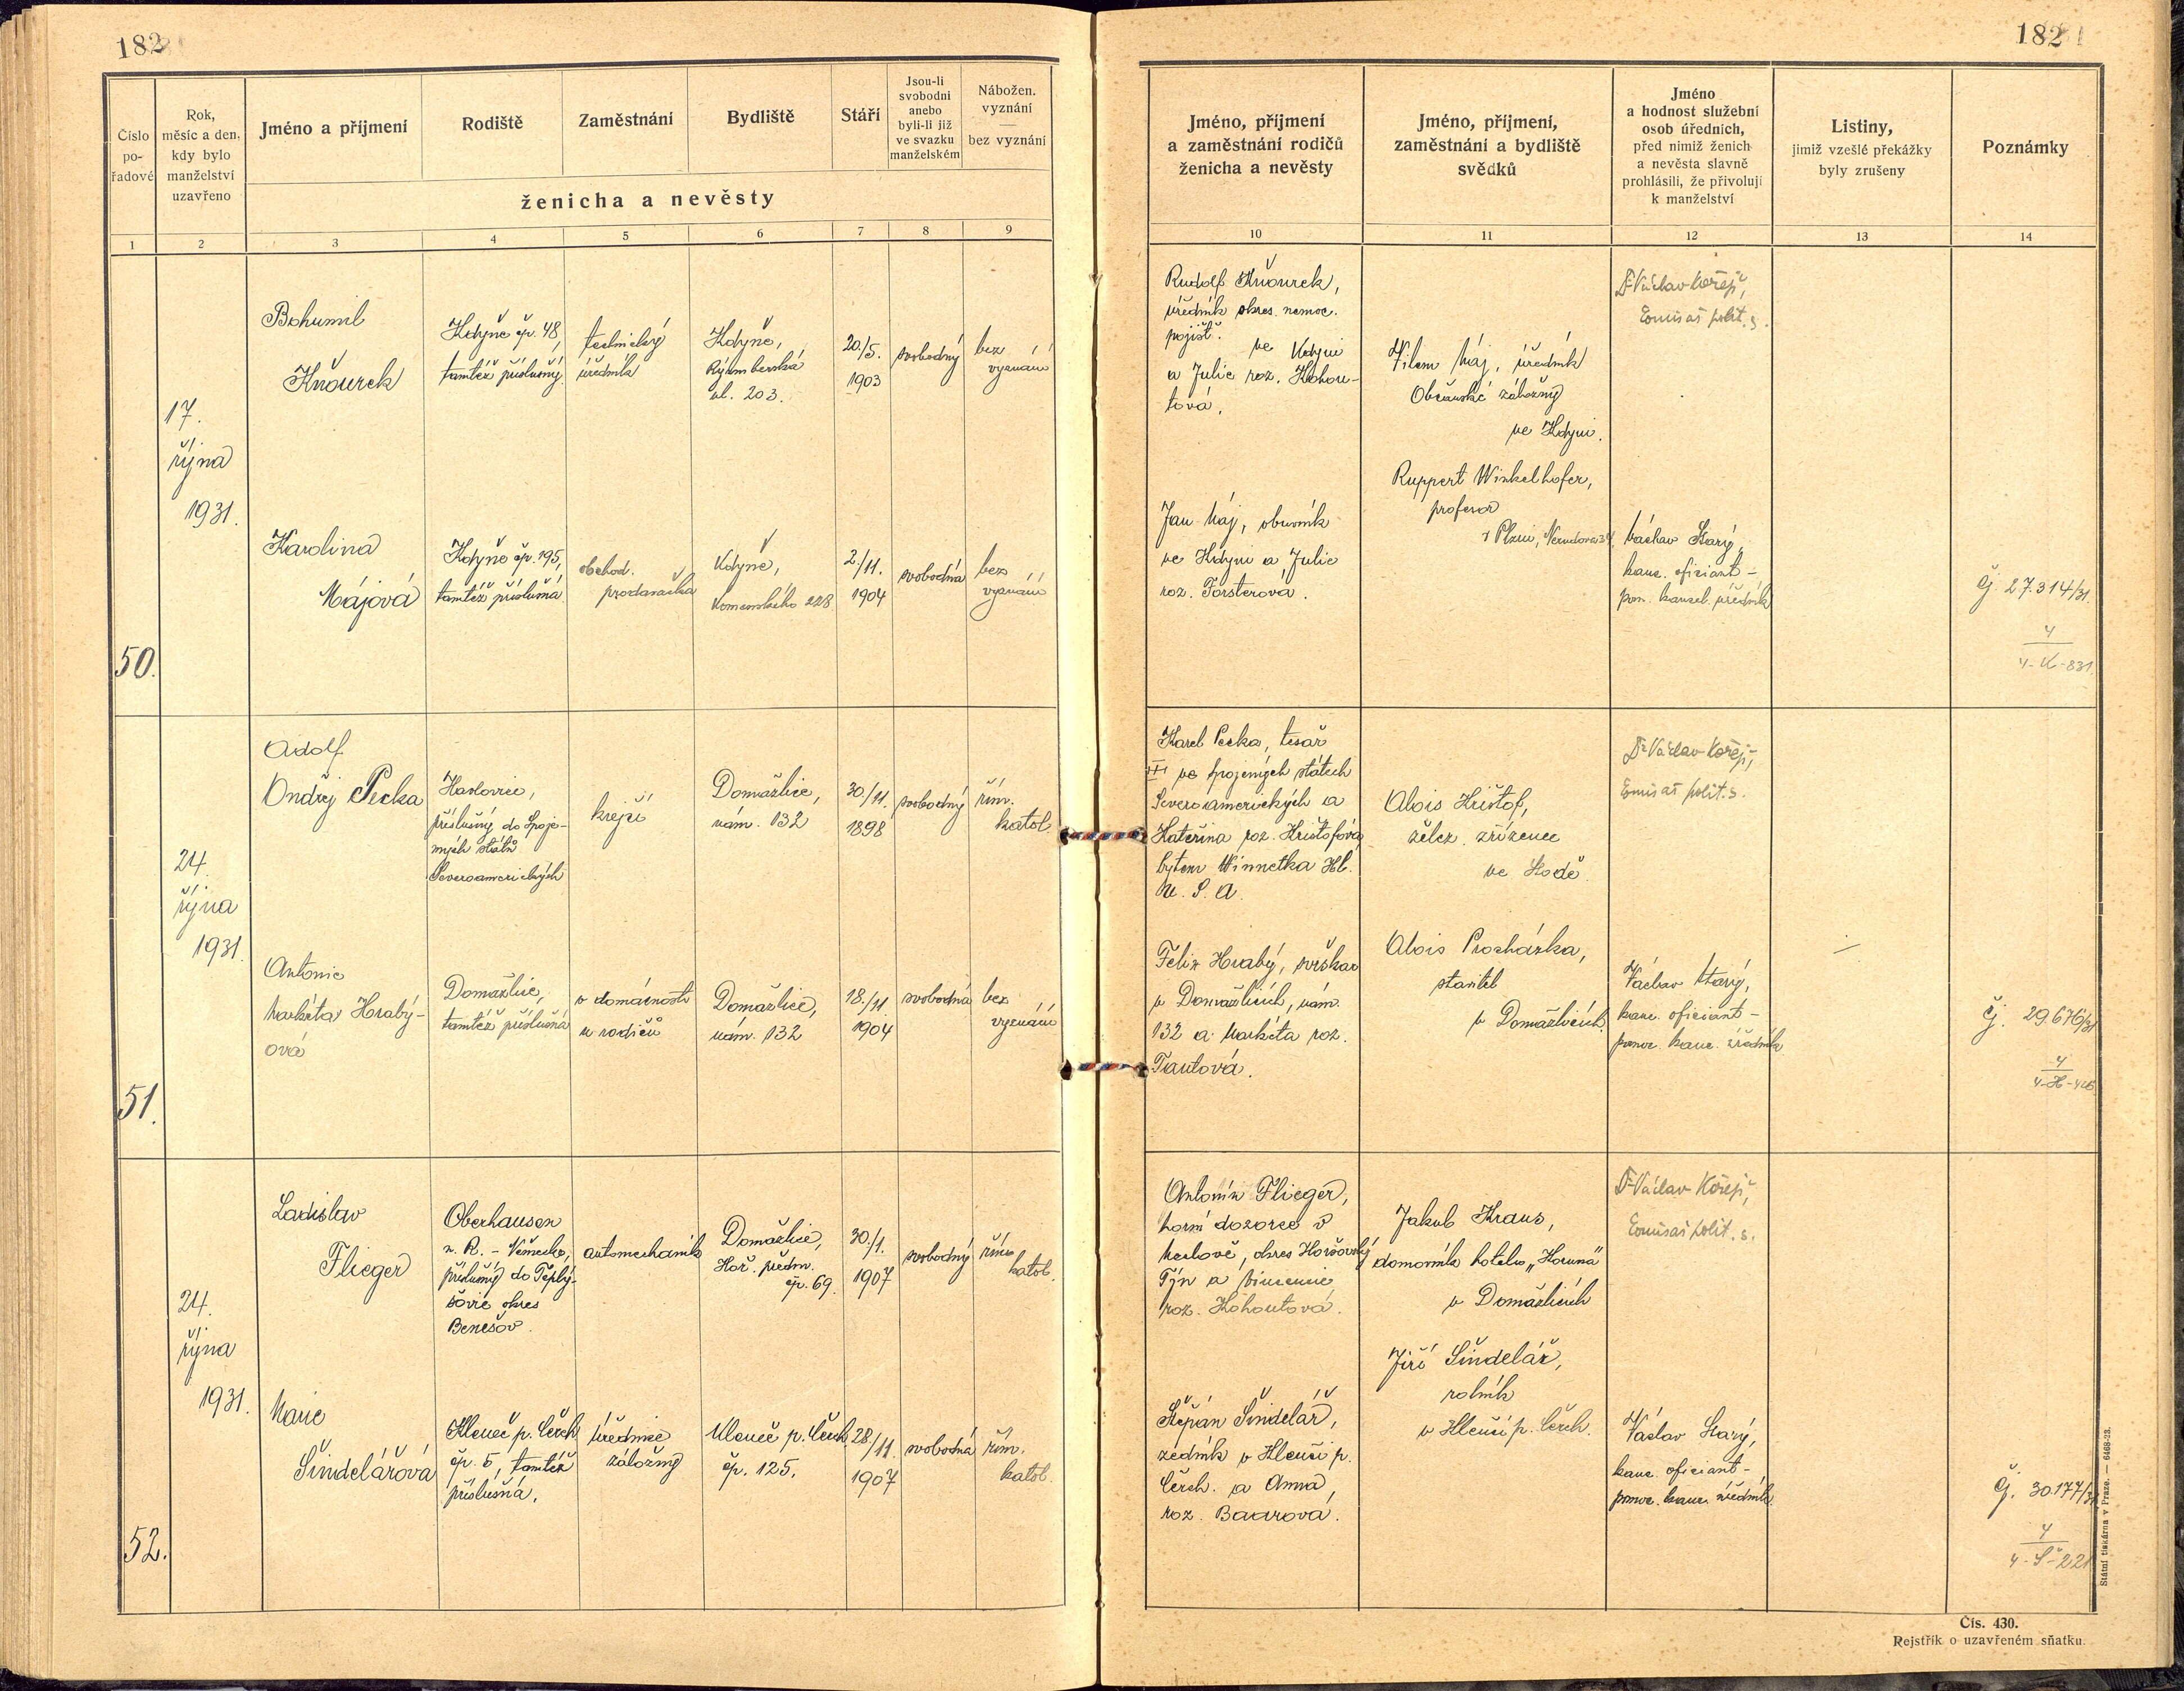 182
182
Číslo
po-
řadové
Rok,
měsíc a den,
kdy bylo
manželství
uzavřeno
Jméno a příjmení
Rodiště
Zaměstnání
Bydliště
Stáří
Jsou-li
svobodni
anebo
byli-li již
ve svazku
manželském
Nábožen.
vyznání
bez vyznání
ženicha a nevěsty
Jméno, příjmení
a zaměstnání rodičů
ženicha a nevěsty
Jméno, příjmení,
zaměstnání a bydliště
svědků
Jméno
a hodnost služební
osob úředních,
před nimiž ženich
a nevěsta slavně
prohlásili, že přivolují
k manželství
Listiny,
jimiž vzešlé překážky
byly zrušeny
Poznámky
1 2 3 4 5 6 7 8 9
10 11 12 13 14
50.
17.
října
1931.
Bohumil
Kňourek
Kdyně čp. 48,
tamtéž příslušný
technický
úředník
Kdyně,
Rýzmberská
ul. 203.
20./5.
1903
svobodný
bez
vyznání
Rudolf Kňourek,
úředník okres. nemoc.
pojišť.
ve Kdyni
a Julie roz. Kohou-
tová.
Vilem Máj, úředník
Občanské záložny
ve Kdyni.
Ruppert Winkelhofer,
profesor
v Plzni, Nerudova 34
Dr Václav Kořej,
komisař polit. s.
Karolina
Májová
Kdyně čp. 195,
tamtéž příslušná
obchod.
prodavačka
Kdyně,
Komenského 228
2./11.
1904
svobodná
bez
vyznání
Jan Máj, obuvník
ve Kdyni a Julie
roz. Forsterová.
Václav Starý,
kanc. oficiant -
pom. kancel. úředník
Čj. 27.314/31.
4
4-K-831
51.
24.
října
1931.
Adolf
Ondřej Pecka
Havlovice,
příslušný do Spoje-
ných států
Severoamerických
krejčí
Domažlice,
nám. 132
30./11.
1898
svobodný
řím.
katol.
Karel Pecka, tesař
ve Spojených státech
Severoamerických a
Kateřina roz. Krištofová
bytem Winnetka Ill.
U. S. A.
Alois Krištof,
želez. zřízenec
ve Kodě.
Alois Procházka,
stavitel
v Domažlicích.
Dr Václav Kořej,
komisař polit. s.
Antonie
Markéta Hrabý-
ová
Domažlice,
tamtéž příslušná
v domácnosti
u rodičů
Domažlice,
nám. 132
18./11
1904
svobodná
bez
vyznání
Felix Hrabý, svrškař
v Domažlicích, nám.
132 a Markéta roz.
Tautová.
Václav Starý,
kanc. oficiant -
pomoc. kanc. úředník
Čj. 29.676/31
4
4-H-426
52.
24.
října
1931.
Ladislav
Flieger
Oberhausen
n. R. - Německo,
příslušný do Teplý-
šovic okres
Benešov.
automechanik
Domažlice,
Hoř. předm.
čp. 69.
30./1.
1907
svobodný
řím.
katol.
Antonín Flieger,
horní dozorce v
Merlově, okres Horšovský
Týn a Vincencie
roz. Kohoutová.
Jakub Kraus,
domovník hotelu „Koruna"
v Domažlicích
Jiří Šindelář,
rolník
v Klenčí p. Čerch.
Dr Václav Kořej,
komisař polit. s.
Marie
Šindelářová
Klenčí p. Čerch.
čp. 5, tamtéž
příslušná.
úřednice
záložny
Klenčí p. Čerch.
čp. 125.
28./11.
1907
svobodná
řím.
katol.
Štěpán Šindelář,
zedník v Klenčí p.
Čerch. a Anna,
roz. Baarová.
Václav Starý,
kanc. oficiant -
pomoc. kanc. úředník
Čj. 30.177/31
4
4-Š-221
Státní tiskárna v Praze. — 6468-23.
Čís. 430.
Rejstřík o uzavřeném sňatku.